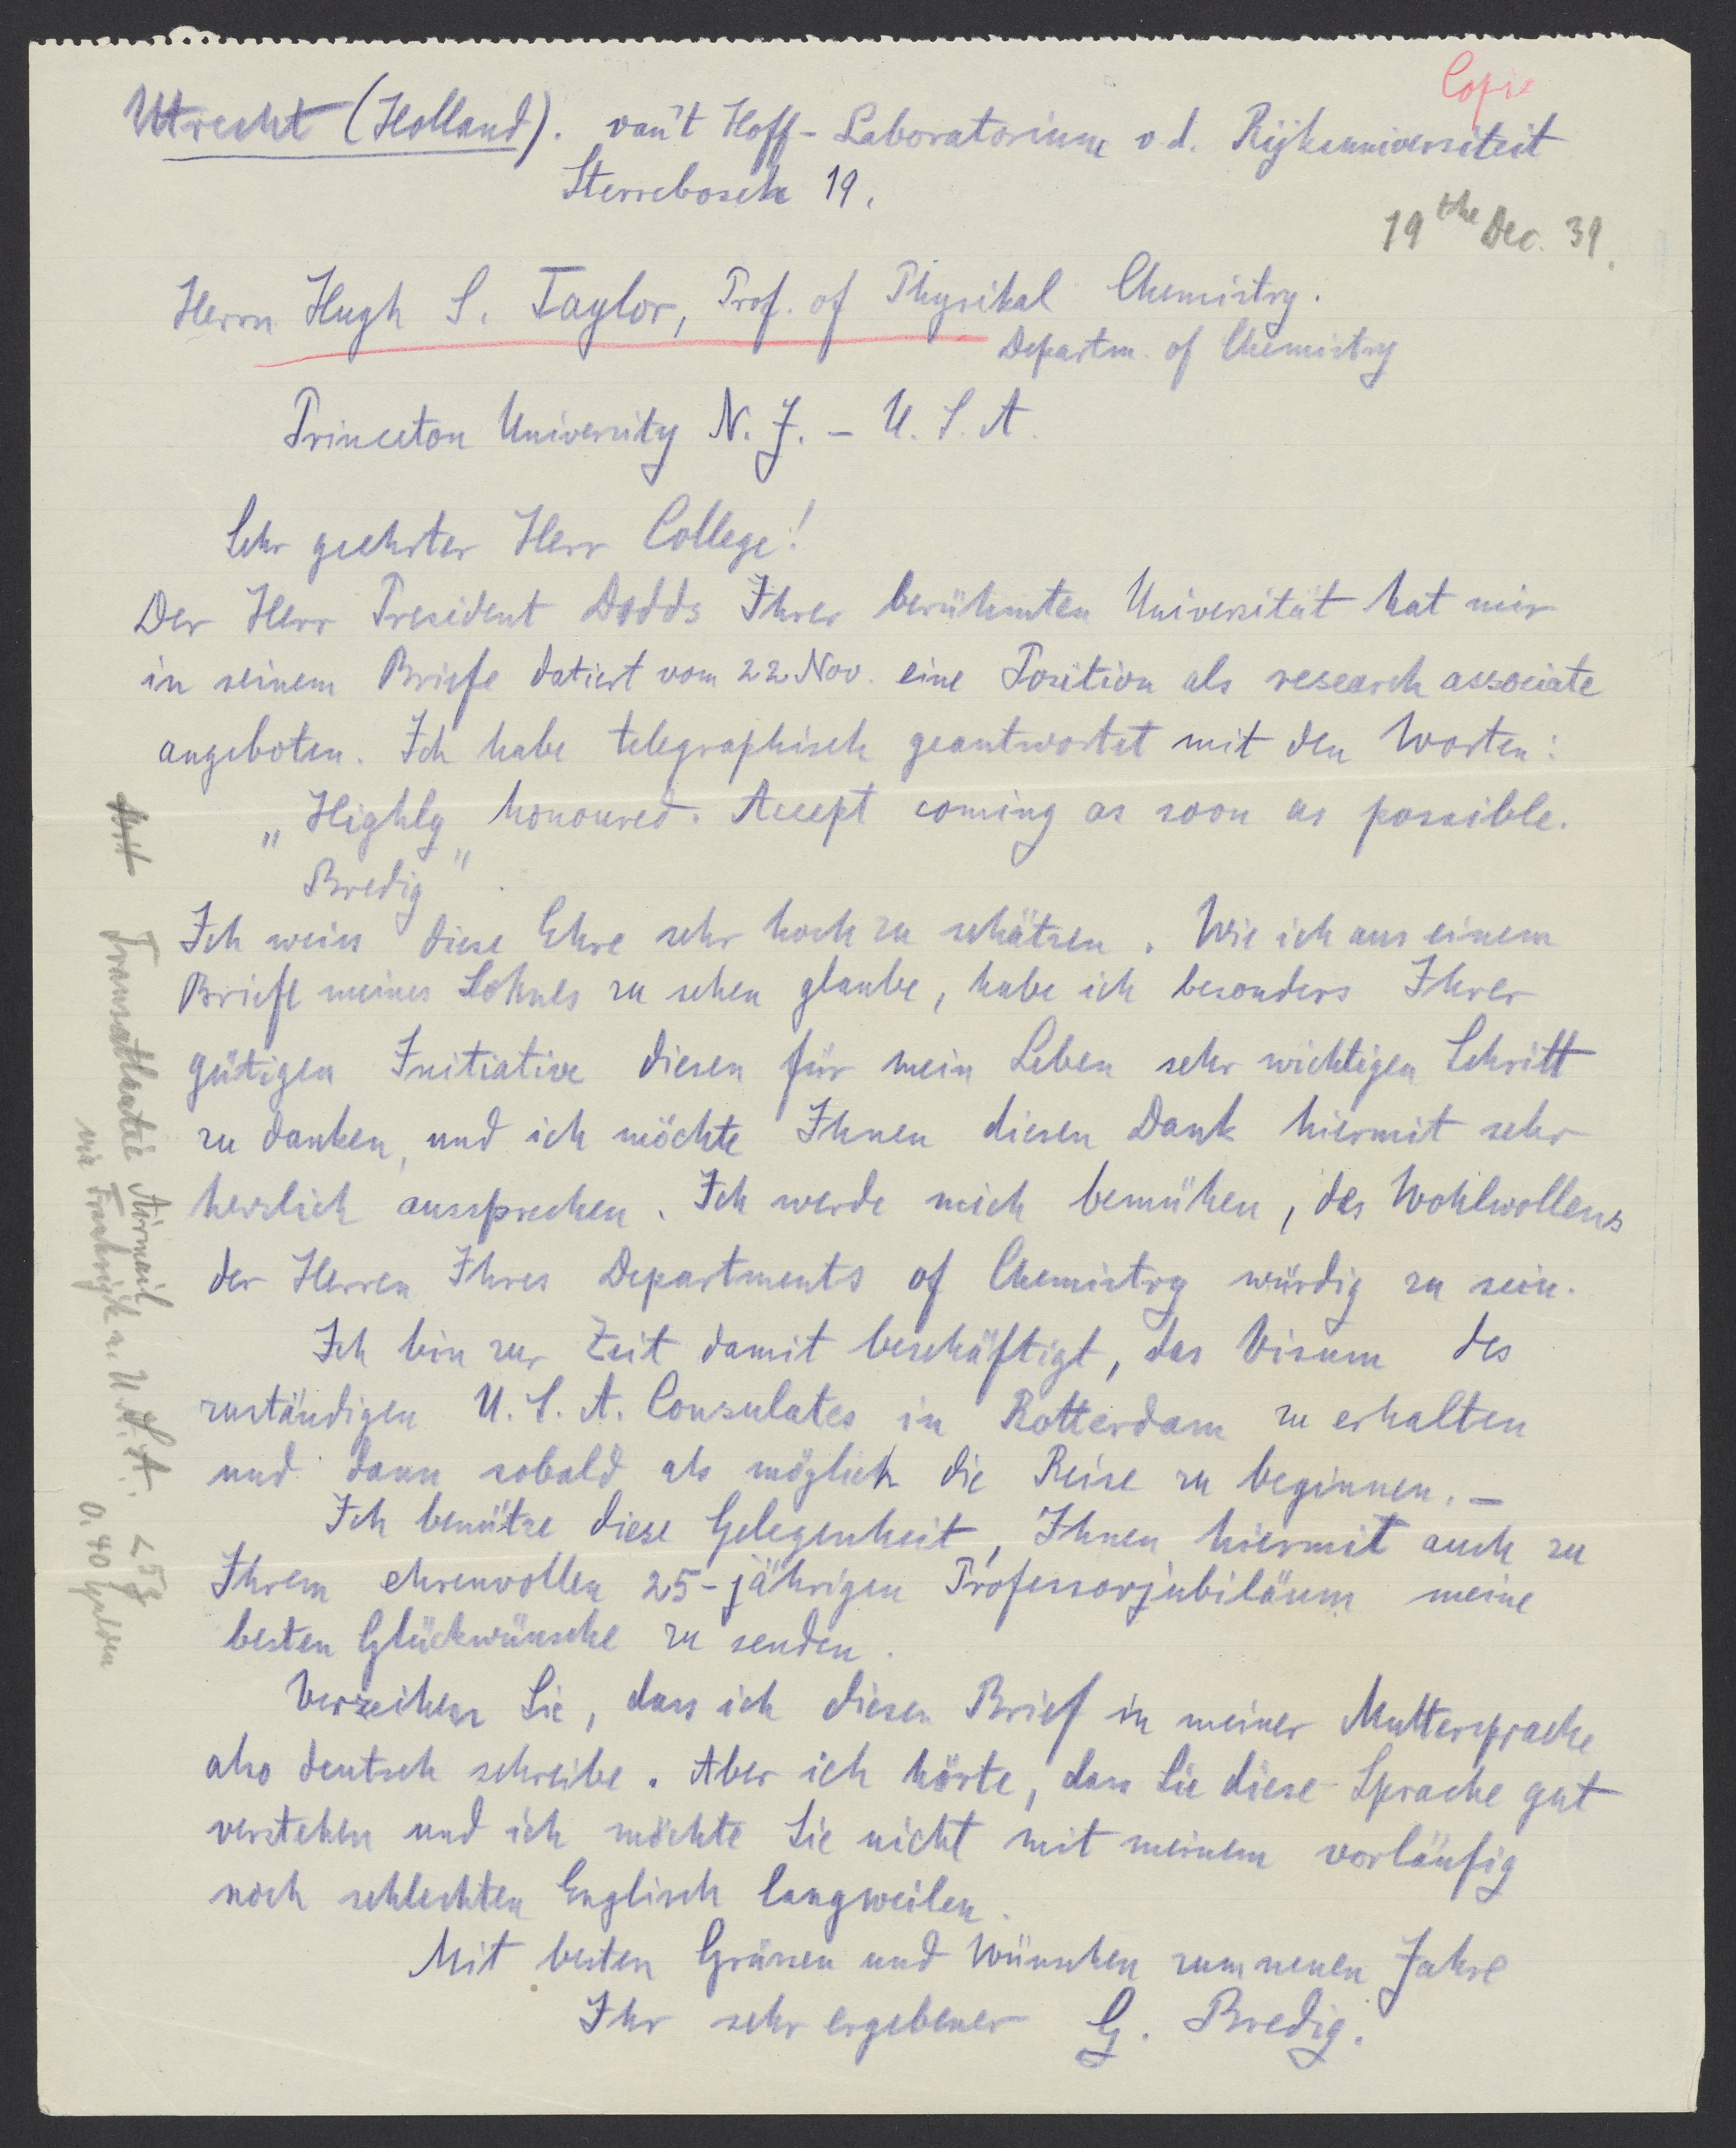 Copie
Utrecht (Holland). van't Hoff-Laboratorium v d. Rijksuniversiteit
Sterrebosch 19.
19the Dec. 39.
Herrn Hugh S. Taylor, Prof. of Physikal Chemistry.
Departm. of Chemistry
Princeton University N. J. – U. S. A.
Sehr geehrter Herr College!
Der Herr President Dodds Ihrer berühmten Universität hat mir
in seinem Briefe datiert vom 22 Nov. eine Position als research associate
angeboten. Ich habe telegraphisch geantwortet mit den Worten:
„Highly honoured. Accept coming as soon as possible.
Bredig".
Ich weiss diese Ehre sehr hoch zu schätzen. Wie ich aus einem
Briefe meines Sohnes zu sehen glaube, habe ich besonders Ihrer
gütigen Initiative diesen für mein Leben sehr wichtigen Schritt
zu danken, und ich möchte Ihnen diesen Dank hiermit sehr
herzlich aussprechen. Ich werde mich bemühen, des Wohlwollens
der Herren Ihres Departments of Chemistry würdig zu sein.
Ich bin zur Zeit damit beschäftigt, das Visum des
zuständigen U. S. A. Consulates in Rotterdam zu erhalten
und dann sobald als möglich die Reise zu beginnen. –
Ich benütze diese Gelegenheit, Ihnen hiermit auch zu
Ihrem ehrenvollen 25-jährigen Professorjubiläum meine
besten Glückwünsche zu senden.
Verzeihen Sie, dass ich diesen Brief in meiner Muttersprache
also deutsch schreibe. Aber ich hörte, dass Sie diese Sprache gut
verstehen und ich möchte Sie nicht mit meinem vorläufig
noch schlechten Englisch langweilen.
Mit besten Grüssen und Wünschen zum neuen Jahre
Ihr sehr ergebener G. Bredig.
Transatlantic Airmail
via Frankrijk n. U.S.A. < 5 g
0.40 Gulden